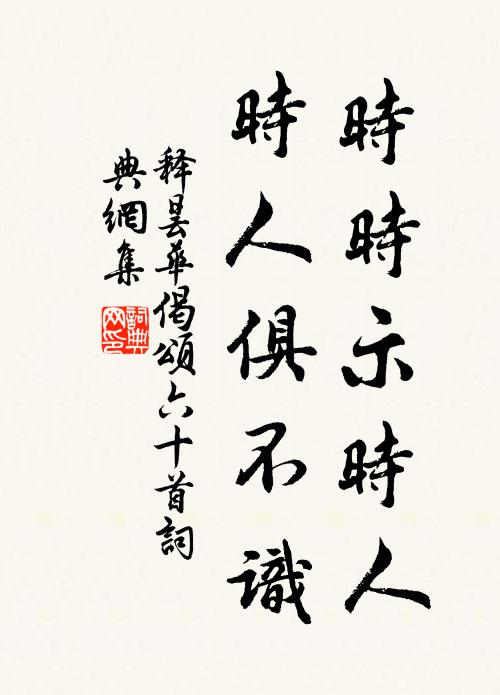 時時示時人
時人俱不識
释曇華偈頌六十首詞
典網集
詞典网印